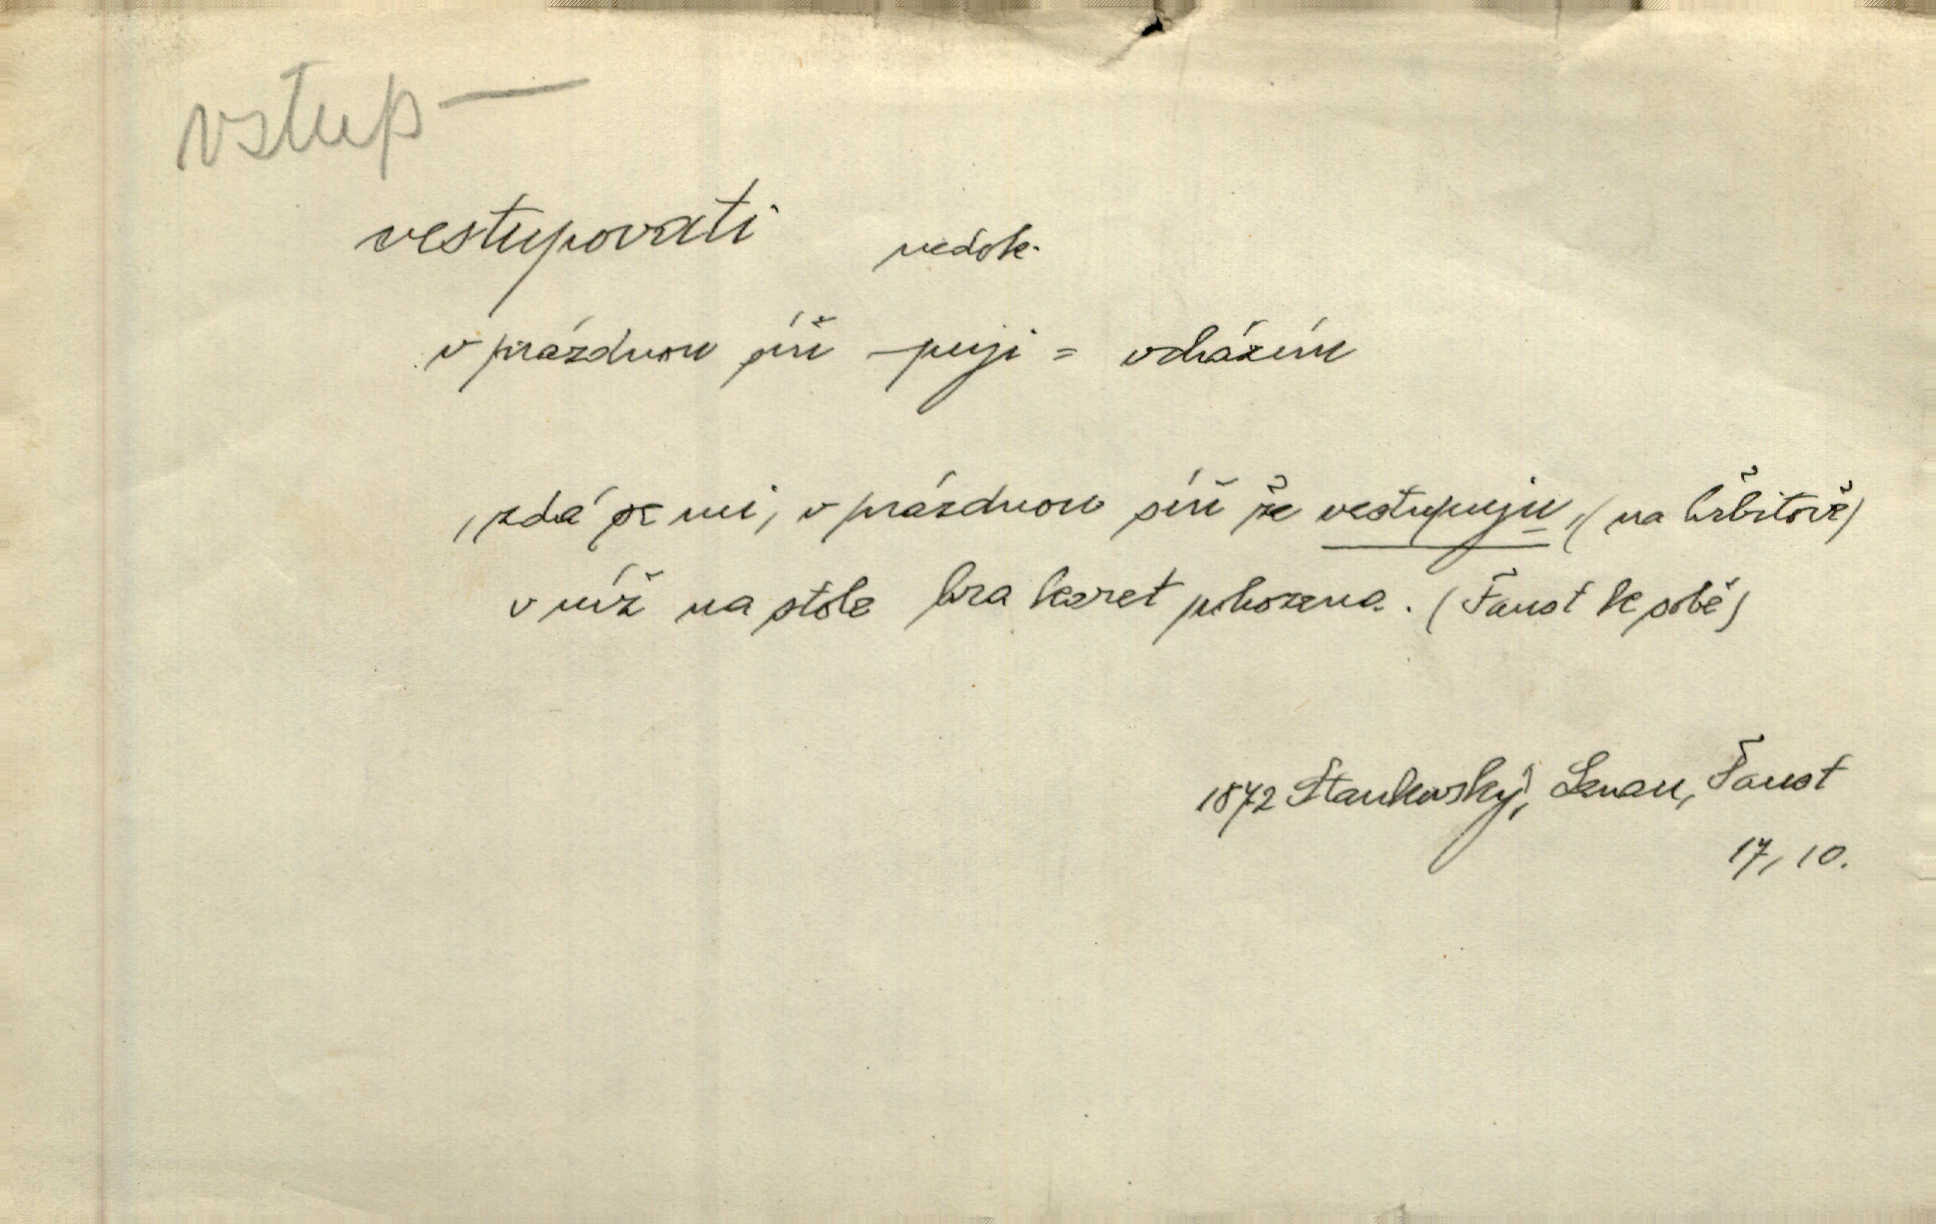 vstup —
vestupovati nedok.
v prázdnou síň -puji = vcházím
, zdá se mi, v prázdnou síň že vestupuju, (na hřbitově)
v níž na stole hra karet pohozena. (Faust k sobě)
1872 Stankovský, Lenau, Faust
17, 10.